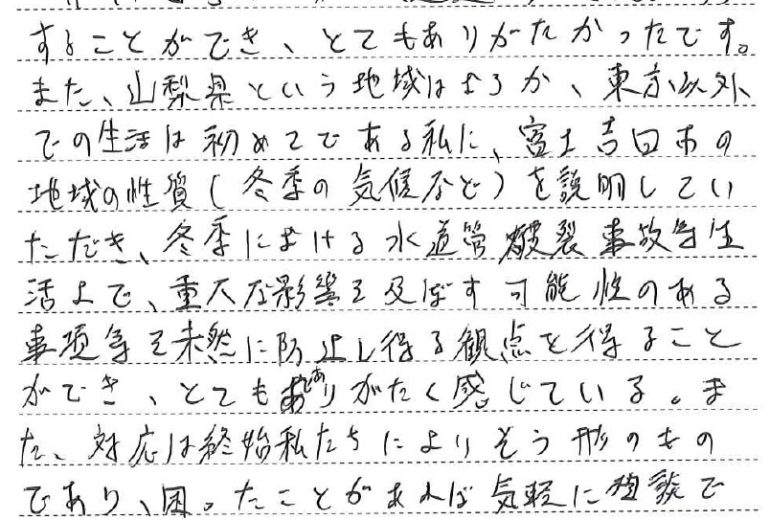 することができ、とてもありがたかったです。
また、山梨県という地域はおろか、東京以外
での生活は初めてである私に、富士吉田市の
地域の性質(冬季の気候など)を説明してい
ただき、冬季における水道管破裂事故等生
活上で、重大な影響を及ぼす可能性のある
事項等を未然に防止し得る観点を得ること
ができ、とてもありがたく感じている。ま
た、対応は終始私たちによりそう形のもの
であり、困ったことがあれば気軽に相談で